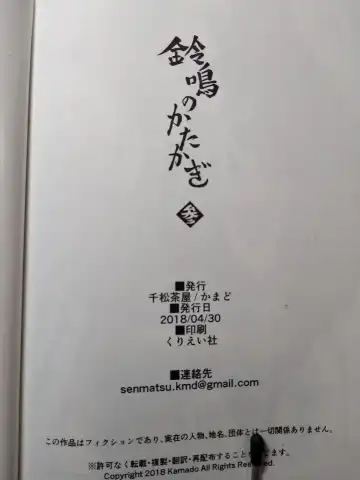 鈴鳴のかたかぎ
参
■発行
千松茶屋/かまど
■発行日
2018/04/30
■印刷
くりえい社
■連絡先
senmatsu.kmd@gmail.com
この作品はフィクションであり、実在の人物、地名、団体とは一切関係ありません。
※許可なく転載・複製・翻訳・再配布することを禁じます。
Copyright 2018 Kamado All Rights Reserved.